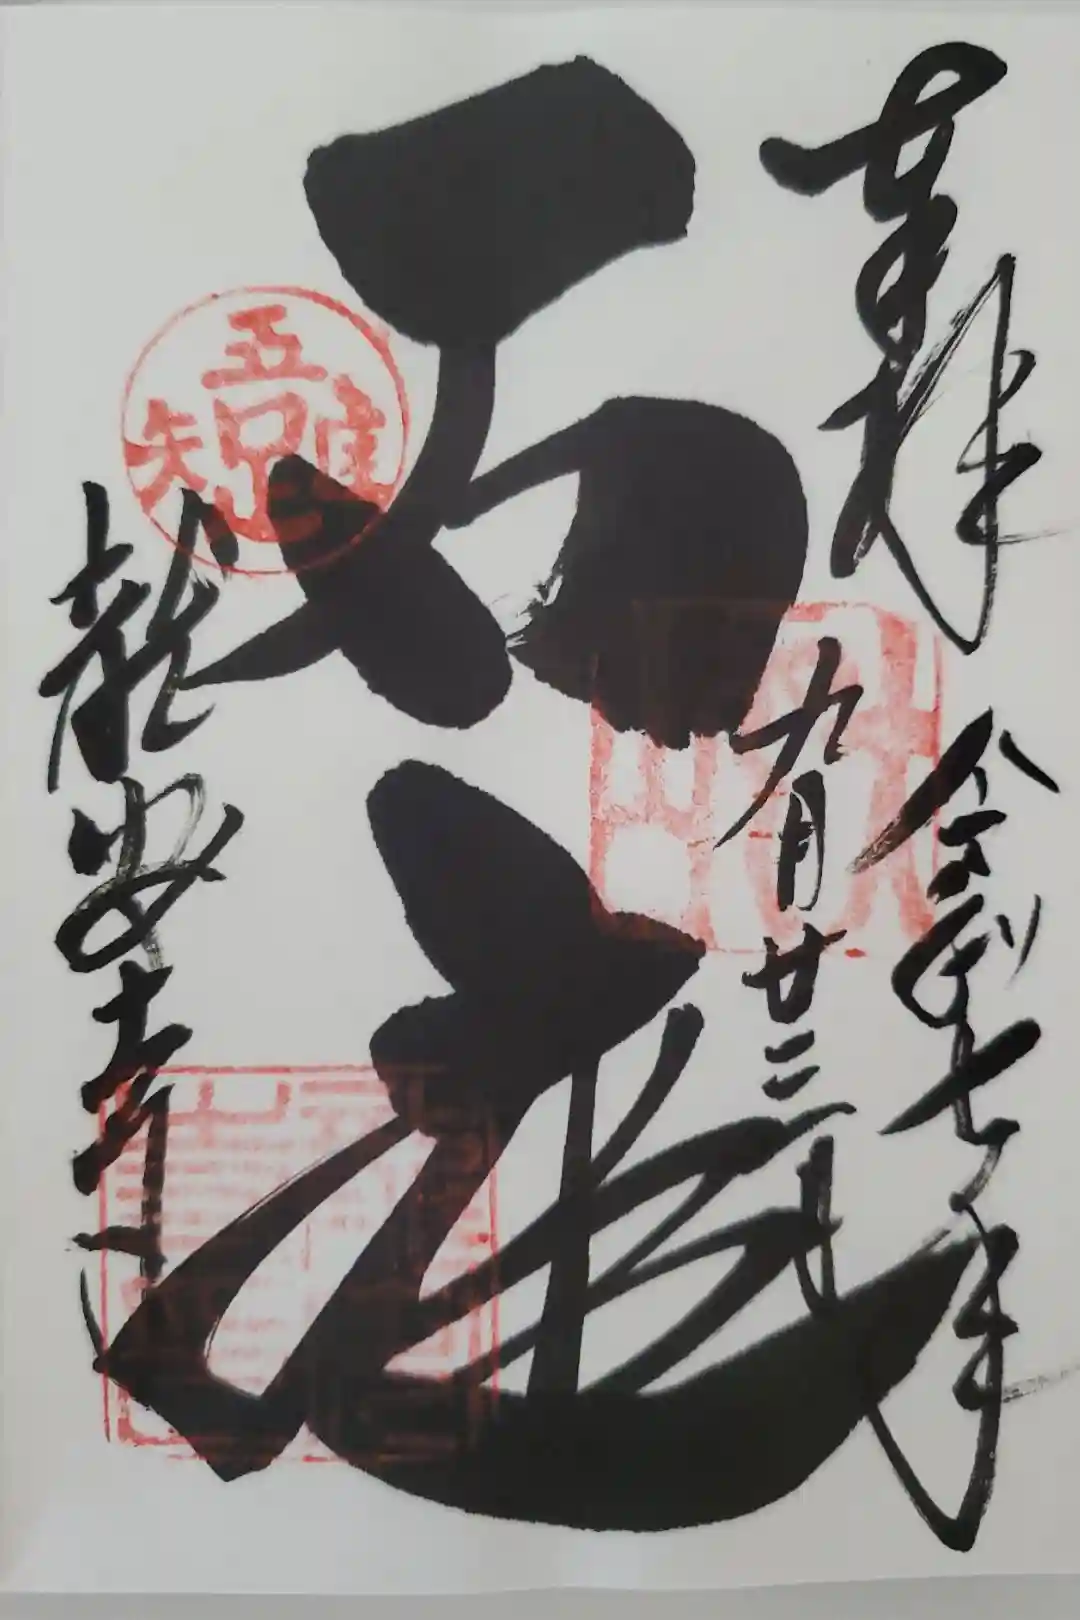 奉拝
令和七年
九月廿三日
石庭
吾唯足知
龍安寺